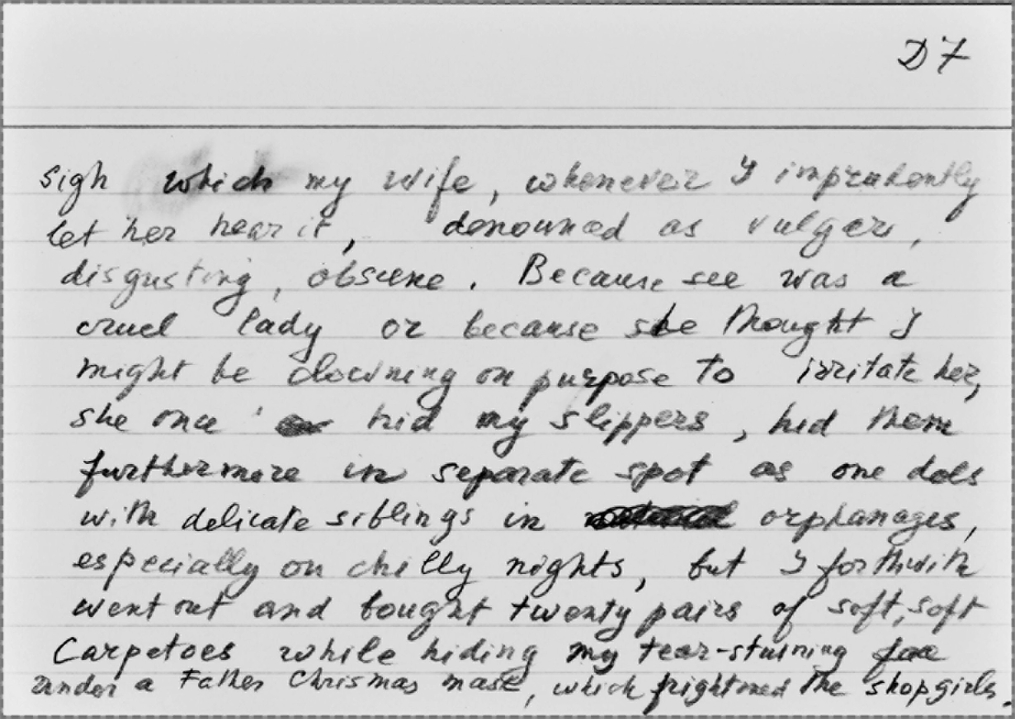 D 7
sigh which my wife, whenever I imprudently
let her hear it, denouned as vulgar,
disgusting, obscene. Because see was a
cruel lady or because she thought I
might be clowning on purpose to irritate her,
she once hid my slippers, hid them
furthermore in separate spot as one does
with delicate siblings in orphanages,
especially on chilly nights, but I forthwith
went out and bought twenty pairs of soft, soft
Carpetoes while hiding my tear-stuining face
under a Father Chrismas mask, which frightened the shopgirls.